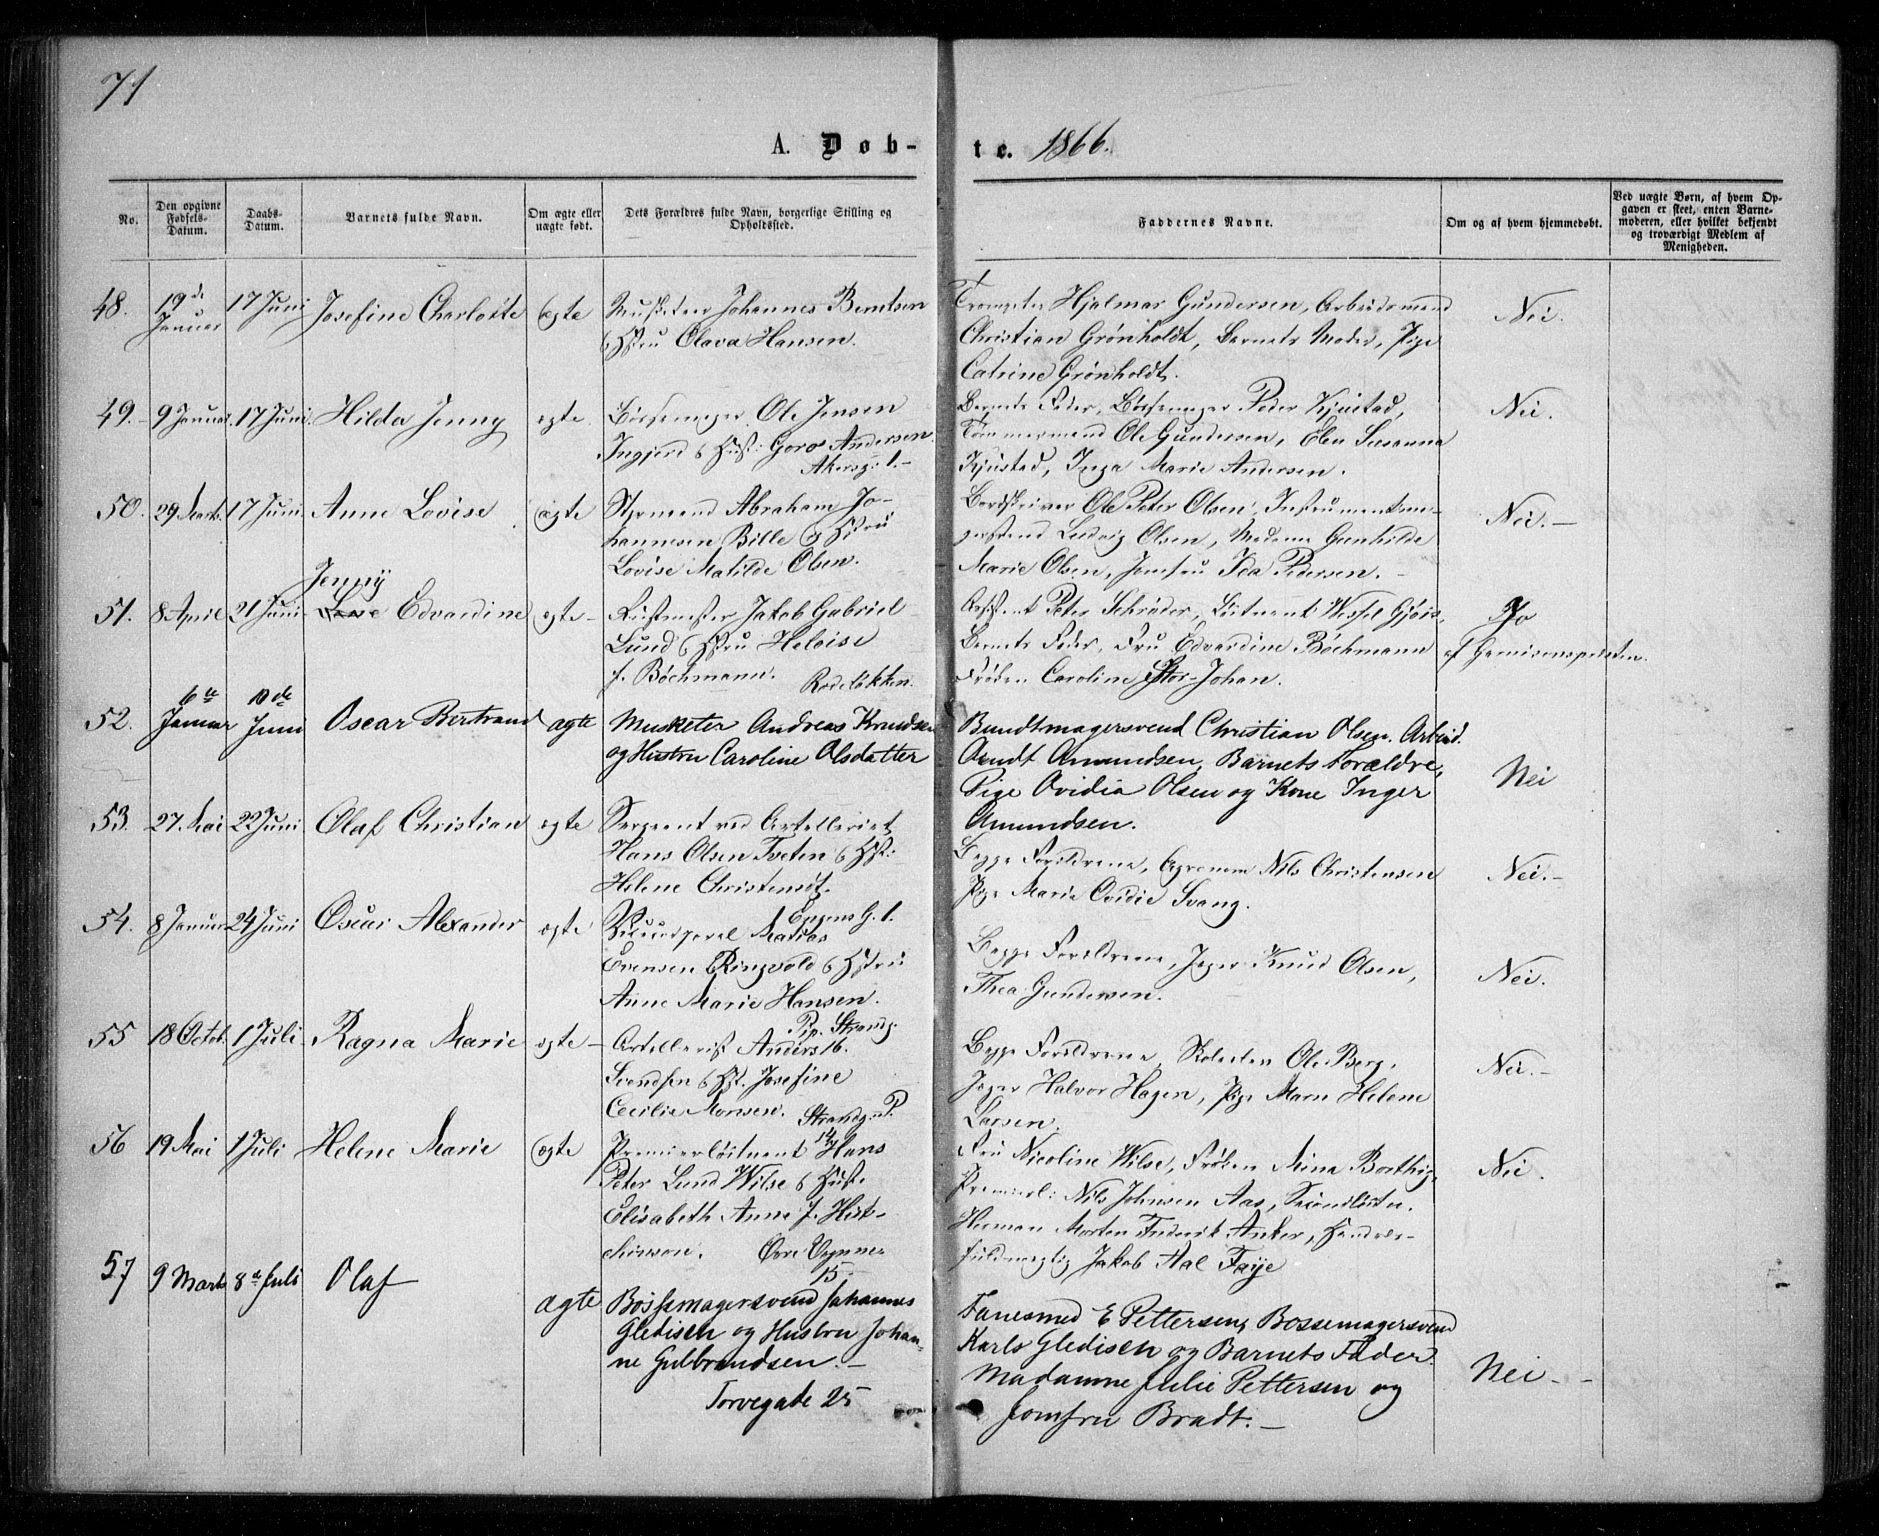 71
A. Døb-
te. 1866.
No.
Den opgivne Fødsels-Datum.
Daabs-Datum.
Barnets fulde Navn.
Om ægte eller uægte født.
Dets Forældres fulde Navn, borgerlige Stilling og Opholdssted.
Faddernes Navne.
Om og af hvem hjemmedøbt.
Ved uægte Børn, af hvem Opgaven er skeet, enten Barnemoderen, eller hvilket bekjendt og troværdigt Medlem af Menigheden.
48. 19de Januar 17 Juni Josefine Charlotte ægte
Musketeer Johannes Berntsen
& Hstru Olava Hansen.
Trompeter Hjalmar Gundersen, Arbeidsmand
Christian Grønholdt, Barnets Moder, Pige
Catrine Grønholdt.
Nei.
49. 9 Januar 17 Juni Hilda Jenny ægte
Bøssemager Ole Jensen
Ingjerd & Hust: Goro Andersen
Akersg: 1.
Barnets Fader, Bøssemager Peder Kjustad,
Tømmermand Ole Gundersen, Susanna
Kjustad, Inga Marie Andersen.
Nei.
50. 29 Marts 17 Juni Anne Lovise ægte
Styrmand Abraham Jo-
hannesen Bille & Hstru
Lovise Matilde Olsen.
Bordskriver Ole Peter Olsen, Instrumentma-
gersvend Ludvig Olsen, Madame Gunhilde
Marie Olsen, Jomfru Ida Pedersen.
Nei. —
Jenny
51. 8 April 21 Juni Edvardine ægte
Rustmester Jakob Gabriel
Lund & Hstru Heloise
f. Bøchmann. Rodeløkken.
Assistent Peter Schrøder, Løitnant Wessel
Barnets Fader, Fru Edvardine Bøchmann
Frøken Caroline Stor-Johan.
Ja
af Garnisonspresten.
52. 6te Januar 10de Juni Oscar Bertrand ægte
Musketer Andreas Knudsen
og Hustru Caroline Olsdatter
Bundtmagersvend Christian Olsen. Arbeid.
Arndt Amundsen, Barnets Forældre,
Pige Ovidia Olsen og Kone Inger
Amundsen.
Nei
53. 27 Mai 22 Juni Olaf Christian ægte
Sergeant ved Artelleriet
Hans Olsen Tveten & Hst:
Helene Christensdt.
Begge Forældrene, Nils Christensen
Pige Marie Ovidie Svang.
Nei. —
54. 8 Januar 24 Juni Oscar Alexander ægte
Matias
Evensen Ringvold & Hstru
Anne Marie Hansen.
Begge Forældrene, Jæger Knud Olsen,
Thea Gundersen.
Nei.
55 18 Octob. 1 Juli Ragna Marie ægte —
Pip. Strandg.
Artellerist Anders 16.
Svendsen & Hst. Josefine
Cecilie Monsen. Strandg. P.
Begge Forældrene, Ole Berg,
Jæger Halvor Hagen, Pige Maren Helene
Larsen.
Nei. —
56 19 Mai 1 Juli Helene Marie ægte
Premierløitnant Hans
Peter Lund Wilse & Hust.
Elisabeth Anne f.
Øvre
15.
Fru Nicoline Wilse, Frøken Mina
Premierl: Nils Johnsen Aas, Secondløitn.
Herman Morten Frederik Anker, Handels-
fuldmægtig Jakob Aal Faye
Nei.
57 9 Marts 8de Juli Olaf ægte
Bøssemagersvend Johannes
Gledisch og Hustru Johan-
ne Gulbrandsen. —
Torvegade 25
Fanesmed E Pettersen, Bossemagersvend
Karls Gledisch og Barnets Fader.
Madamme Julie Pettersen og
Jomfru Bradt. —
Nei. -